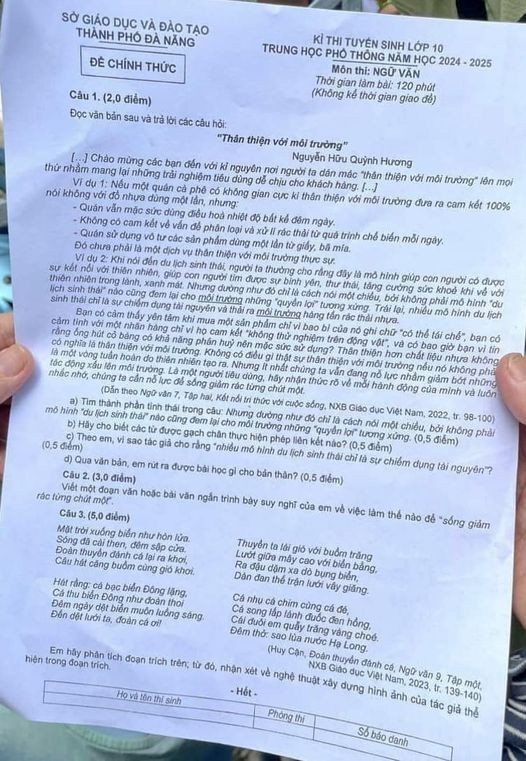 SỞ GIÁO DỤC VÀ ĐÀO TẠO
THÀNH PHỐ ĐÀ NẴNG
ĐỀ CHÍNH THỨC
KÌ THI TUYỂN SINH LỚP 10
TRUNG HỌC PHỔ THÔNG NĂM HỌC 2024 - 2025
Môn thi: NGỮ VĂN
Thời gian làm bài: 120 phút
(Không kể thời gian giao đề)
Câu 1. (2,0 điểm)
Đọc văn bản sau và trả lời các câu hỏi:
"Thân thiện với môi trường"
Nguyễn Hữu Quỳnh Hương
[...] Chào mừng các bạn đến với kỉ nguyên nơi người ta dán mác "thân thiện với môi trường" lên mọi
thứ nhằm mang lại những trải nghiệm tiêu dùng dễ chịu cho khách hàng. [...]
Ví dụ 1: Nếu một quán cà phê có không gian cực kì thân thiện với môi trường đưa ra cam kết 100%
nói không với đồ nhựa dùng một lần, nhưng:
- Quán vẫn mặc sức dùng điều hoà nhiệt độ bất kể đêm ngày.
- Không có cam kết về vấn đề phân loại và xử lí rác thải từ quá trình chế biến mỗi ngày.
- Quán sử dụng vô tư các sản phẩm dùng một lần từ giấy, bã mía.
Đó chưa phải là một dịch vụ thân thiện với môi trường thực sự.
Ví dụ 2: Khi nói đến du lịch sinh thái, người ta thường cho rằng đây là mô hình giúp con người có được
sự kết nối với thiên nhiên, giúp con người tìm được sự bình yên, thư thái, tăng cường sức khoẻ khi về với
thiên nhiên trong lành, xanh mát. Nhưng dường như đó chỉ là cách nói một chiều, bởi không phải mô hình "du
lịch sinh thái" nào cũng đem lại cho môi trường những "quyền lợi" tương xứng. Trái lại, nhiều mô hình du lịch
sinh thái chỉ là sự chiếm dụng tài nguyên và thải ra môi trường hàng tấn rác thải nhựa.
Bạn có cảm thấy yên tâm khi mua một sản phẩm chỉ vì bao bì của nó ghi chữ "có thể tái chế", bạn có
cảm tình với một nhãn hàng chỉ vì họ cam kết "không thử nghiệm trên động vật", và có bao giờ bạn vì tin
rằng ống hút cỏ bàng có khả năng phân huỷ nên mặc sức sử dụng? Thân thiện hơn chất liệu nhựa không
có nghĩa là thân thiện với môi trường. Không có điều gì thật sự thân thiện với môi trường nếu nó không phải
là một vòng tuần hoàn do thiên nhiên tạo ra. Nhưng ít nhất chúng ta vẫn đang nỗ lực nhằm giảm bớt những
tác động xấu lên môi trường. Là một người tiêu dùng, hãy nhận thức rõ về mỗi hành động của mình và luôn
nhắc nhở, chúng ta cần nỗ lực để sống giảm rác từng chút một.
(Dẫn theo Ngữ văn 7, Tập hai, Kết nối tri thức với cuộc sống, NXB Giáo dục Việt Nam, 2022, tr. 98-100)
a) Tìm thành phần tình thái trong câu: Nhưng dường như đó chỉ là cách nói một chiều, bởi không phải
mô hình "du lịch sinh thái" nào cũng đem lại cho môi trường những "quyền lợi" tương xứng. (0,5 điểm)
b) Hãy cho biết các từ được gạch chân thực hiện phép liên kết nào? (0,5 điểm)
c) Theo em, vì sao tác giả cho rằng "nhiều mô hình du lịch sinh thái chỉ là sự chiếm dụng tài nguyên"?
(0,5 điểm)
d) Qua văn bản, em rút ra được bài học gì cho bản thân? (0,5 điểm)
Câu 2. (3,0 điểm)
Viết một đoạn văn hoặc bài văn ngắn trình bày suy nghĩ của em về việc làm thế nào để "sống giảm
rác từng chút một".
Câu 3. (5,0 điểm)
Mặt trời xuống biển như hòn lửa.
Sóng đã cài then, đêm sập cửa.
Đoàn thuyền đánh cá lại ra khơi,
Câu hát căng buồm cùng gió khơi.
Hát rằng: cá bạc biển Đông lặng,
Cá thu biển Đông như đoàn thoi
Đêm ngày dệt biển muôn luồng sáng.
Đến dệt lưới ta, đoàn cá ơi!
Thuyền ta lái gió với buồm trăng
Lướt giữa mây cao với biển bằng,
Ra đậu dặm xa dò bụng biển,
Dàn đan thế trận lưới vây giăng.
Cá nhụ cá chim cùng cá đé,
Cá song lấp lánh đuốc đen hồng,
Cái đuôi em quẫy trăng vàng choé.
Đêm thở: sao lùa nước Hạ Long.
(Huy Cận, Đoàn thuyền đánh cá, Ngữ văn 9, Tập một,
NXB Giáo dục Việt Nam, 2023, tr. 139-140)
Em hãy phân tích đoạn trích trên; từ đó, nhận xét về nghệ thuật xây dựng hình ảnh của tác giả thể
hiện trong đoạn trích.
- Hết -
Họ và tên thí sinh
Phòng thi
Số báo danh